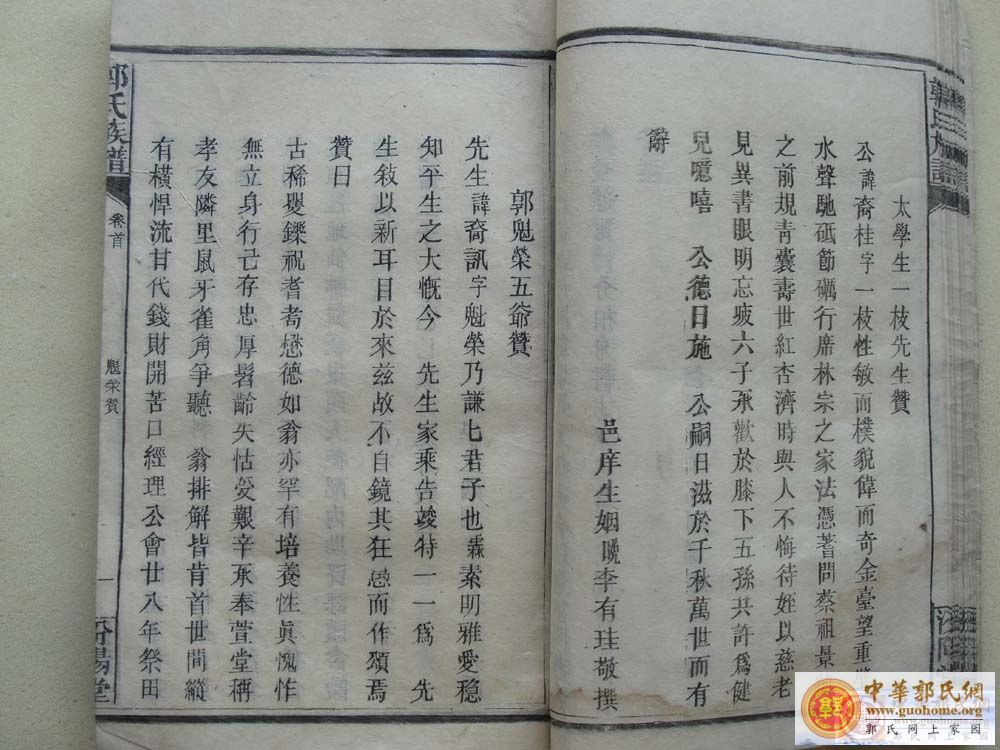 太學生一枝先生贊
公諱裔桂字一枝性敏而樸貌偉而奇金臺望重
水聲馳砥節礪行席林宗之家法憑蓍問蔡祖景
之前規青囊壽世紅杏濟時與人不悔待姪以慈老
見異書眼明忘疲六子承歡於膝下五孫共許爲健
兒噫嘻 公德日施 公嗣日滋於千秋萬世而有
辭
邑庠生姻晚李有珪敬撰
郭魁榮五爺贊
先生諱裔訊字魁榮乃謙七君子也素明雅愛穩
知平生之大慨今 先生家乘告竣特一一爲 先
生敘以新耳目於來茲故不自鏡其狂愚而作頌焉
贊曰
古稀矍鑠祝耆耇懋德如翁亦罕有培養性眞愧怍
無立身行己存忠厚髫齡失怙受艱辛承奉萱堂稱
孝友隣里鼠牙雀角爭聽 翁排解皆肯首世間縱
有橫悍流甘代錢財開苦口經理公會廿八年祭田
郭氏族譜
卷首
魁榮贊
一
汾陽堂
中華郭氏網
www.guohome.org
郭氏網上家園